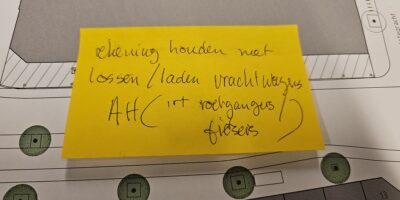 rekening houden met
lossen/laden vrachtwagens
AH (irt voetgangers/
fietsers)